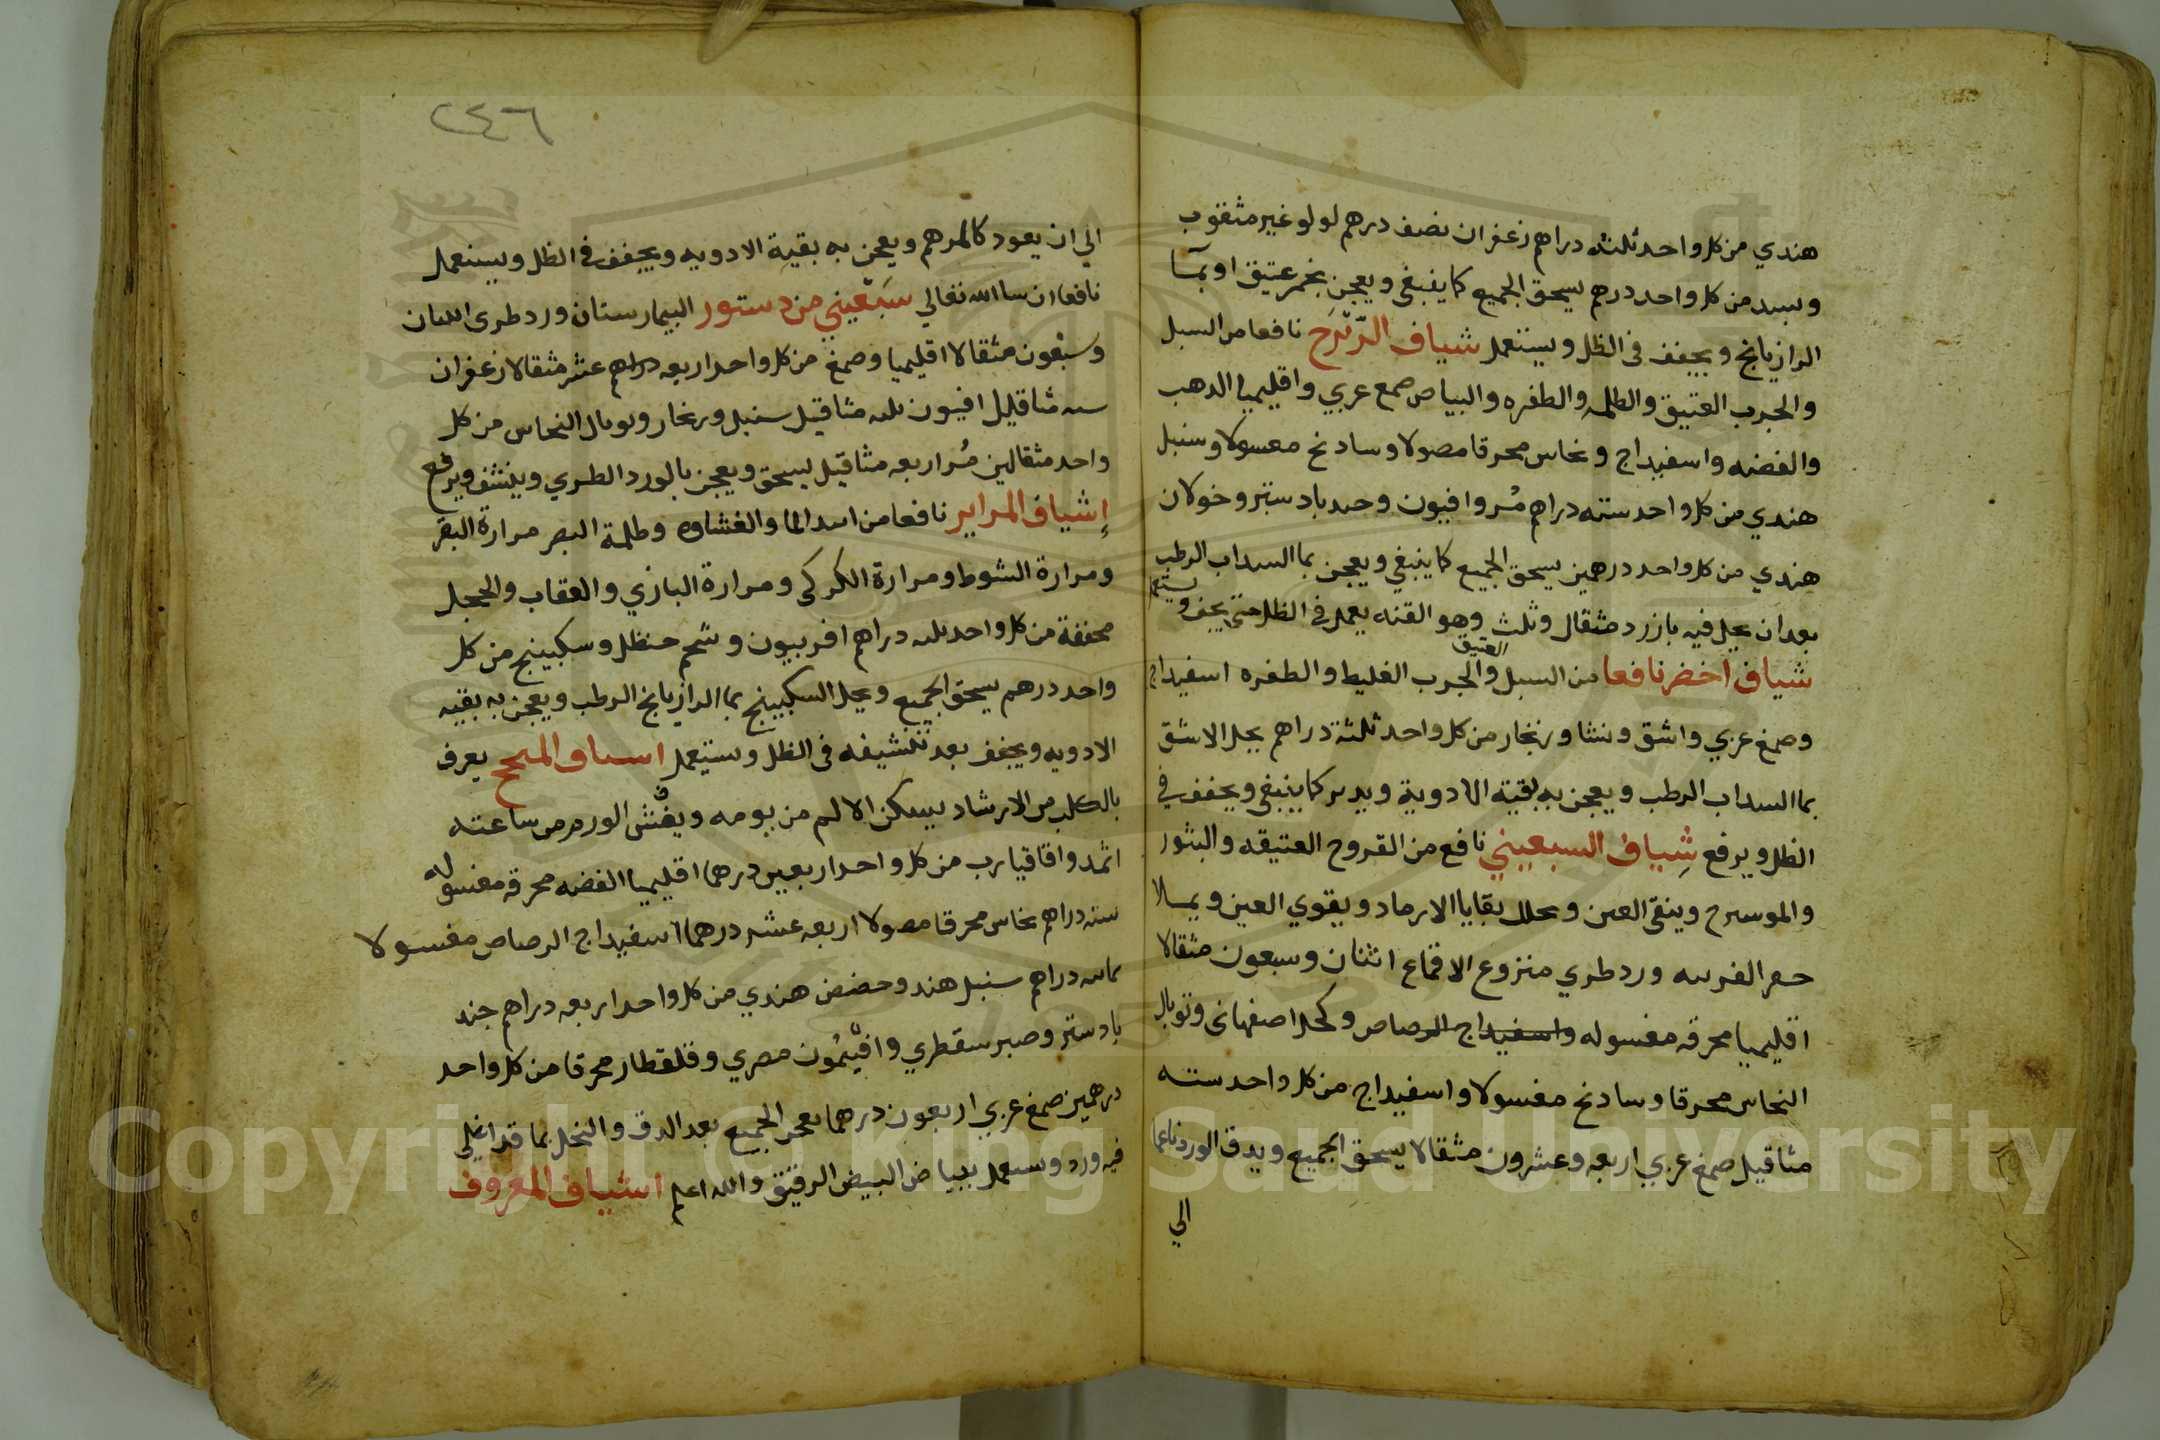 هندي من كل واحد ثلثه دراهم زعفران نصف درهم لولو غير مثقوب
وسبد من كل واحد درهم يسحق الجميع كما ينبغي ويعجن بخمر عتيق او بما
الرازيانج ويجفف في الظل ويستعمل شياف الدّيْزَج نافعا من السبل
والجرب العتيق والظلمه والظفره والبياض صمغ عربي واقليميا الدهب
والفضه واسفيداج ونحاس محرقا مصولا وسادنج مغسولا وسنبل
هندي من كل واحد سته دراهم مُر وافيون وجندبادستر وخولان
هندي من كل واحد درهمين يسحق الجميع كما ينبغي ويعجن بما السداب الرطب
بعد ان يحل فيه بازرد مثقال وثلث وهو القنه يعمل في الظل حتى يجف ويستعمل
شياف اخضر نافعا من السبل والجرب العتيق الغليظ والظفره اسفيداج
وصمغ عربي واشق ونشا وزنجار من كل واحد ثلثة دراهم يحل الاشق
بما السداب الرطب ويعجن به بقية الادوية ويدبر كما ينبغي ويجفف في
الظل ويرفع شياف السبعيني نافع من القروح العتيقه والبثور
والموسرج وينقى العين ويحلل بقايا الارماد ويقوي العين ويملا
حفر القرنيه ورد طري منزوع الاقماع اثنان وسبعون مثقالا
اقليميا محرقه مغسوله واسفيداج الرصاص وكحل اصفهاني وتوبال
النحاس محرقا وسادنج مغسولا واسفيداج من كل واحد سته
مثاقيل صمغ عربي اربعه وعشرون مثقالا يسحق الجميع ويدق الورد ناعما
الي
٢٤٦
الي ان يعود كالمرهم ويعجن به بقية الادويه ويجفف في الظل ويستعمل
نافعا ان سا الله تعالي سَبْعيني من دستور البيمارستان ورد طري اثنان
وسبْعون مثقالا اقليميا وصمغ من كل واحد اربعه دراهم عشر مثقالا زعفران
سته مثاقليل افيون ثلثه مثاقيل سنبل وزنجار وتوبال النحاس من كل
واحد مثقالين مُر اربعه مثاقيل يسحق ويعجن بالورد الطري وينشف ويرفع
إشياف المراير نافعا من ابتدا الما والغشاوه وظلمة البصر مرارة البقر
ومرارة الشوط ومرارة الكركي ومرارة البازي والعقاب والحجل
مجففة من كل واحد ثلثه دراهم افربيون وشحم حنظل وسكبينج من كل
واحد درهم يسحق الجميع ويحل السكبينج بما الرازيانج الرطب ويعجن به بقيه
الادويه ويجفف بعد تشيفه في الظل ويستعمل اسياف المنجح يعرف
بالكلب من الارشاد يسكن الالم من يومه ويفُشّ الورم من ساعته
اثمد واقاقيا رب من كل واحد اربعين درهما اقليميا الفضه محرقه مغسوله
سته دراهم نحاس محرقا مصولا اربعه عشر درهما اسفيداج الرصاص مغسولا
ثمانيه دراهم سنبل هند وحضض هندي من كل واحد اربعه دراهم جند
بادستر وصبر سقطري وافيْمُون مصري وقلقطار محرقا من كل واحد
درهمين صمغ عربي اربعون درهما يعجن الجميع بعد الدق والنخل بما قد اغلي
فيه ورد ويستعمل ببياض البيض الرقيق والله اعلم اشياف المعروف
Copyright © King Saud University